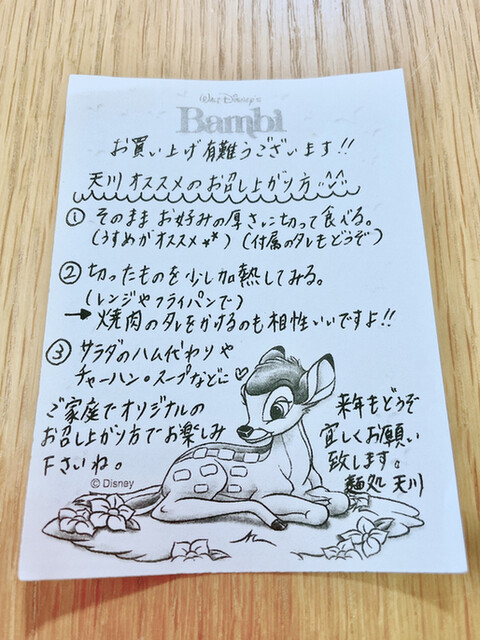 WALT DISNEY'S
Bambi
お買い上げ有難うございます!!
天川オススメのお召し上がり方
① そのままお好みの厚さに切って食べる。
(うすめがオススメ**)(付属のタレもどうぞ)
② 切ったものを少し加熱してみる。
(レンジやフライパンで)
→焼肉のタレをかけるのも相性いいですよ!!
③ サラダのハム代わりや
チャーハン・スープなどに♡
ご家庭でオリジナルの
お召し上がり方でお楽しみ
下さいね。
© Disney
来年もどうぞ
宜しくお願い
致します。
麺処 天川